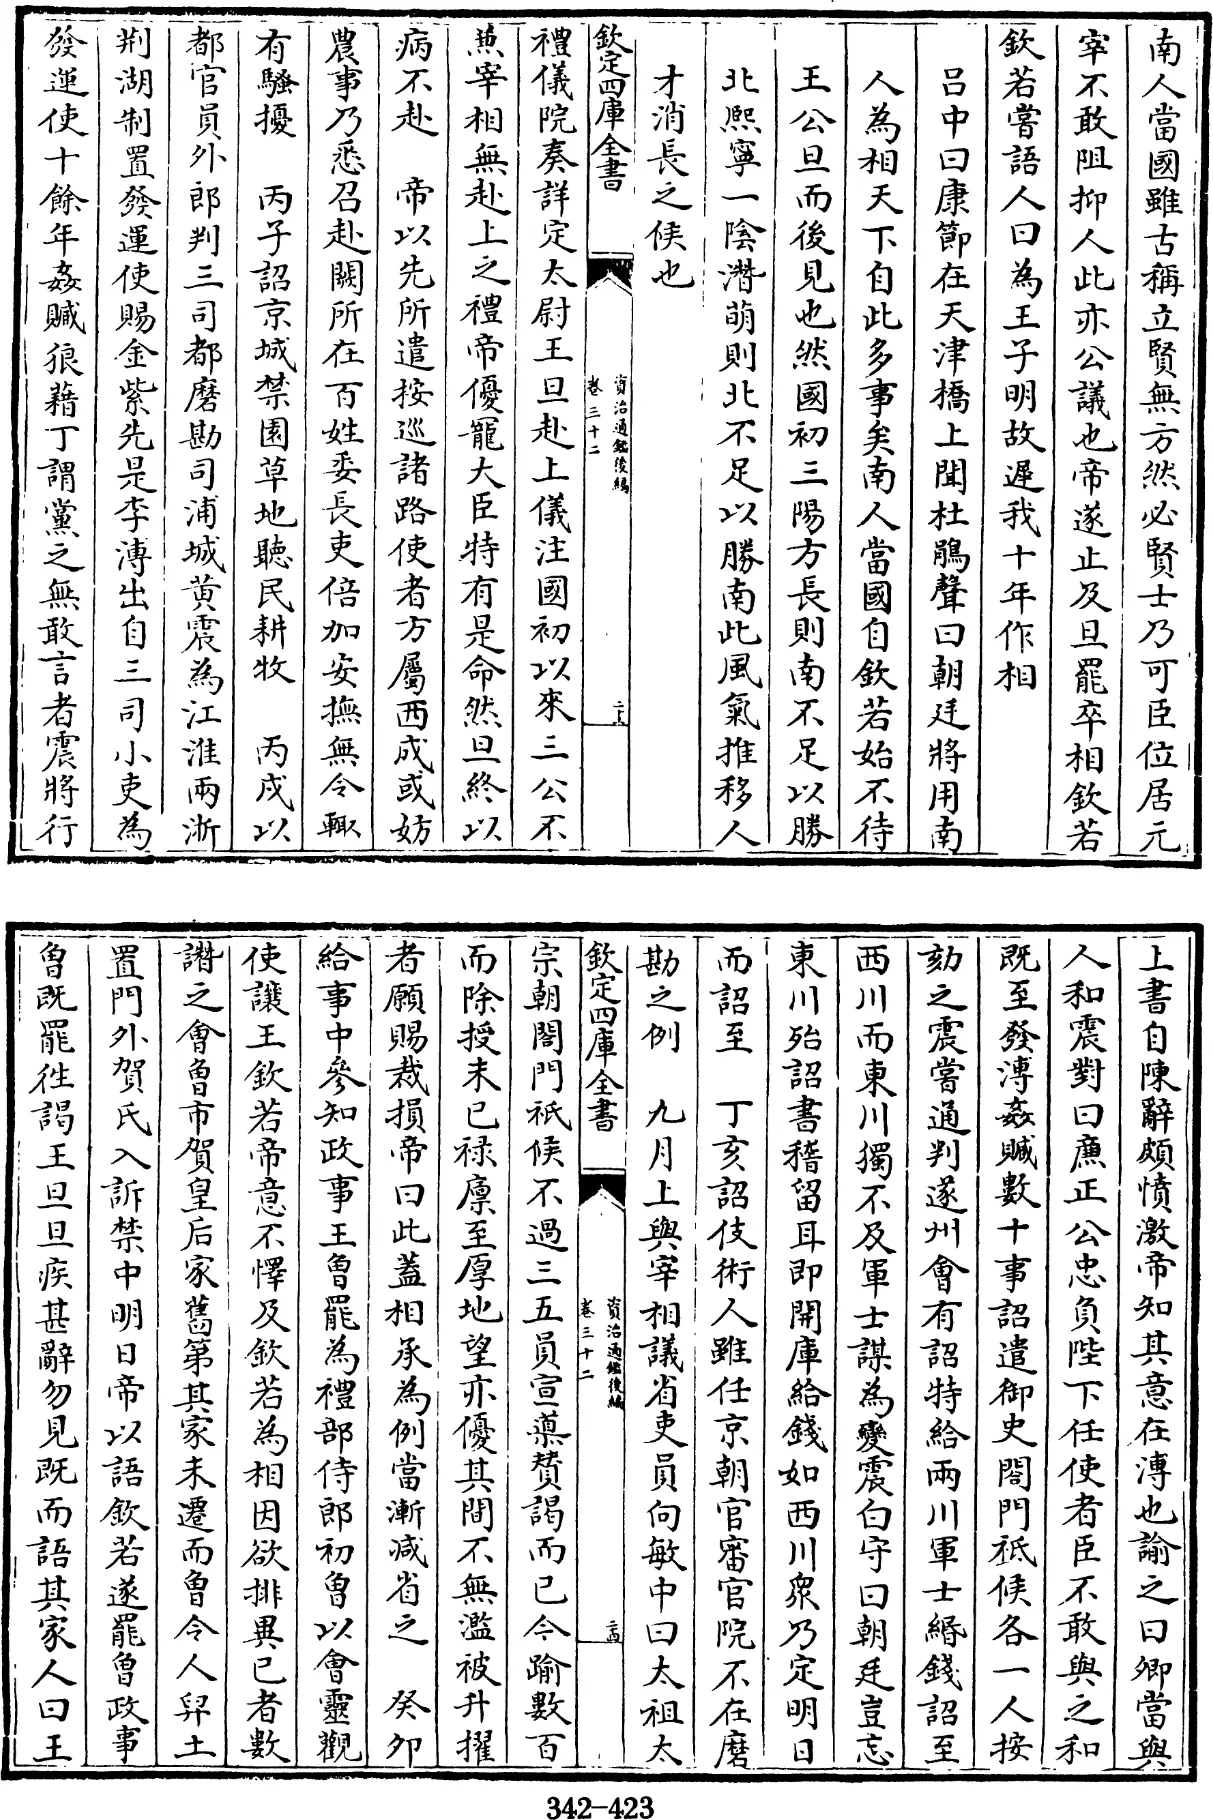 南人當國雖古稱立賢無方然必賢士乃可臣位居元
宰不敢阻抑人此亦公議也帝遂止及旦罷卒相欽若
欽若嘗語人曰為王子明故遲我十年作相
呂中曰康節在天津橋上聞杜鵑聲曰朝廷將用南
人為相天下自此多事矣南人當國自欽若始不待
王公旦而後見也然國初三陽方長則南不足以勝
北熙寧一陰潛萌則北不足以勝南此風氣推移人
才消長之候也
欽定四庫全書
資治通鑑後編
卷三十二
二十三
禮儀院奏詳定太尉王旦赴上儀注國初以來三公不
兼宰相無赴上之禮帝優寵大臣特有是命然旦終以
病不赴　帝以先所遣按巡諸路使者方屬西成或妨
農事乃悉召赴闕所在百姓委長吏倍加安撫無令輒
有騷擾　丙子詔京城禁園草地聽民耕牧　丙戌以
都官員外郎判三司都磨勘司浦城黃震為江淮兩浙
荆湖制置發運使賜金紫先是李溥出自三司小吏為
發運使十餘年姦贓狼藉丁謂黨之無敢言者震將行
上書自陳辭頗憤激帝知其意在溥也諭之曰卿當與
人和震對曰廉正公忠負陛下任使者臣不敢與之和
既至發溥姦贓數十事詔遣御史閤門祗候各一人按
劾之震嘗通判遂州會有詔特給兩川軍士緡錢詔至
西川而東川獨不及軍士謀為變震白守曰朝廷豈忘
東川殆詔書稽留耳即開庫給錢如西川衆乃定明日
而詔至　丁亥詔伎術人雖任京朝官審官院不在磨
勘之例　九月上與宰相議省吏員向敏中曰太祖太
欽定四庫全書
資治通鑑後編
卷三十二
二十四
宗朝閤門祗候不過三五員宣導贊謁而已今踰數百
而除授未已禄廩至厚地望亦優其間不無濫被升擢
者願賜裁損帝曰此蓋相承為例當漸減省之　癸卯
給事中參知政事王曾罷為禮部侍郎初曾以會靈觀
使讓王欽若帝意不懌及欽若為相因欲排異己者數
譖之會曾市賀皇后家舊第其家未遷而曾令人舁土
置門外賀氏入訴禁中明日帝以語欽若遂罷曾政事
曾既罷往謁王旦旦疾甚辭勿見既而語其家人曰王
342-423